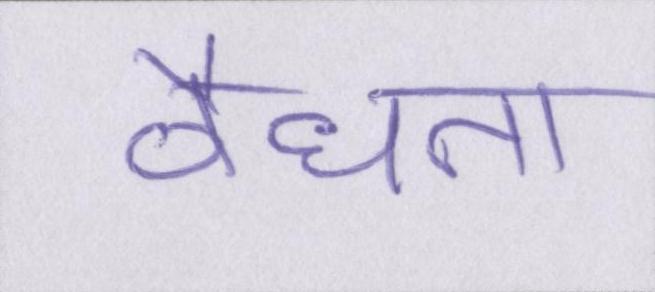 वैधता